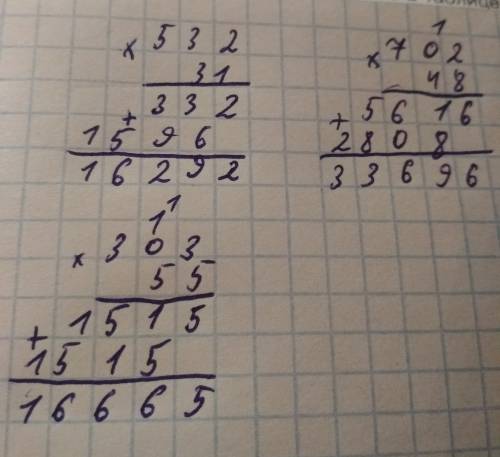 × 532
31
332
+
1596
16292
1
× 702
48
5616
+
2808
33696
11
× 303
55
1515
+
1515
16665